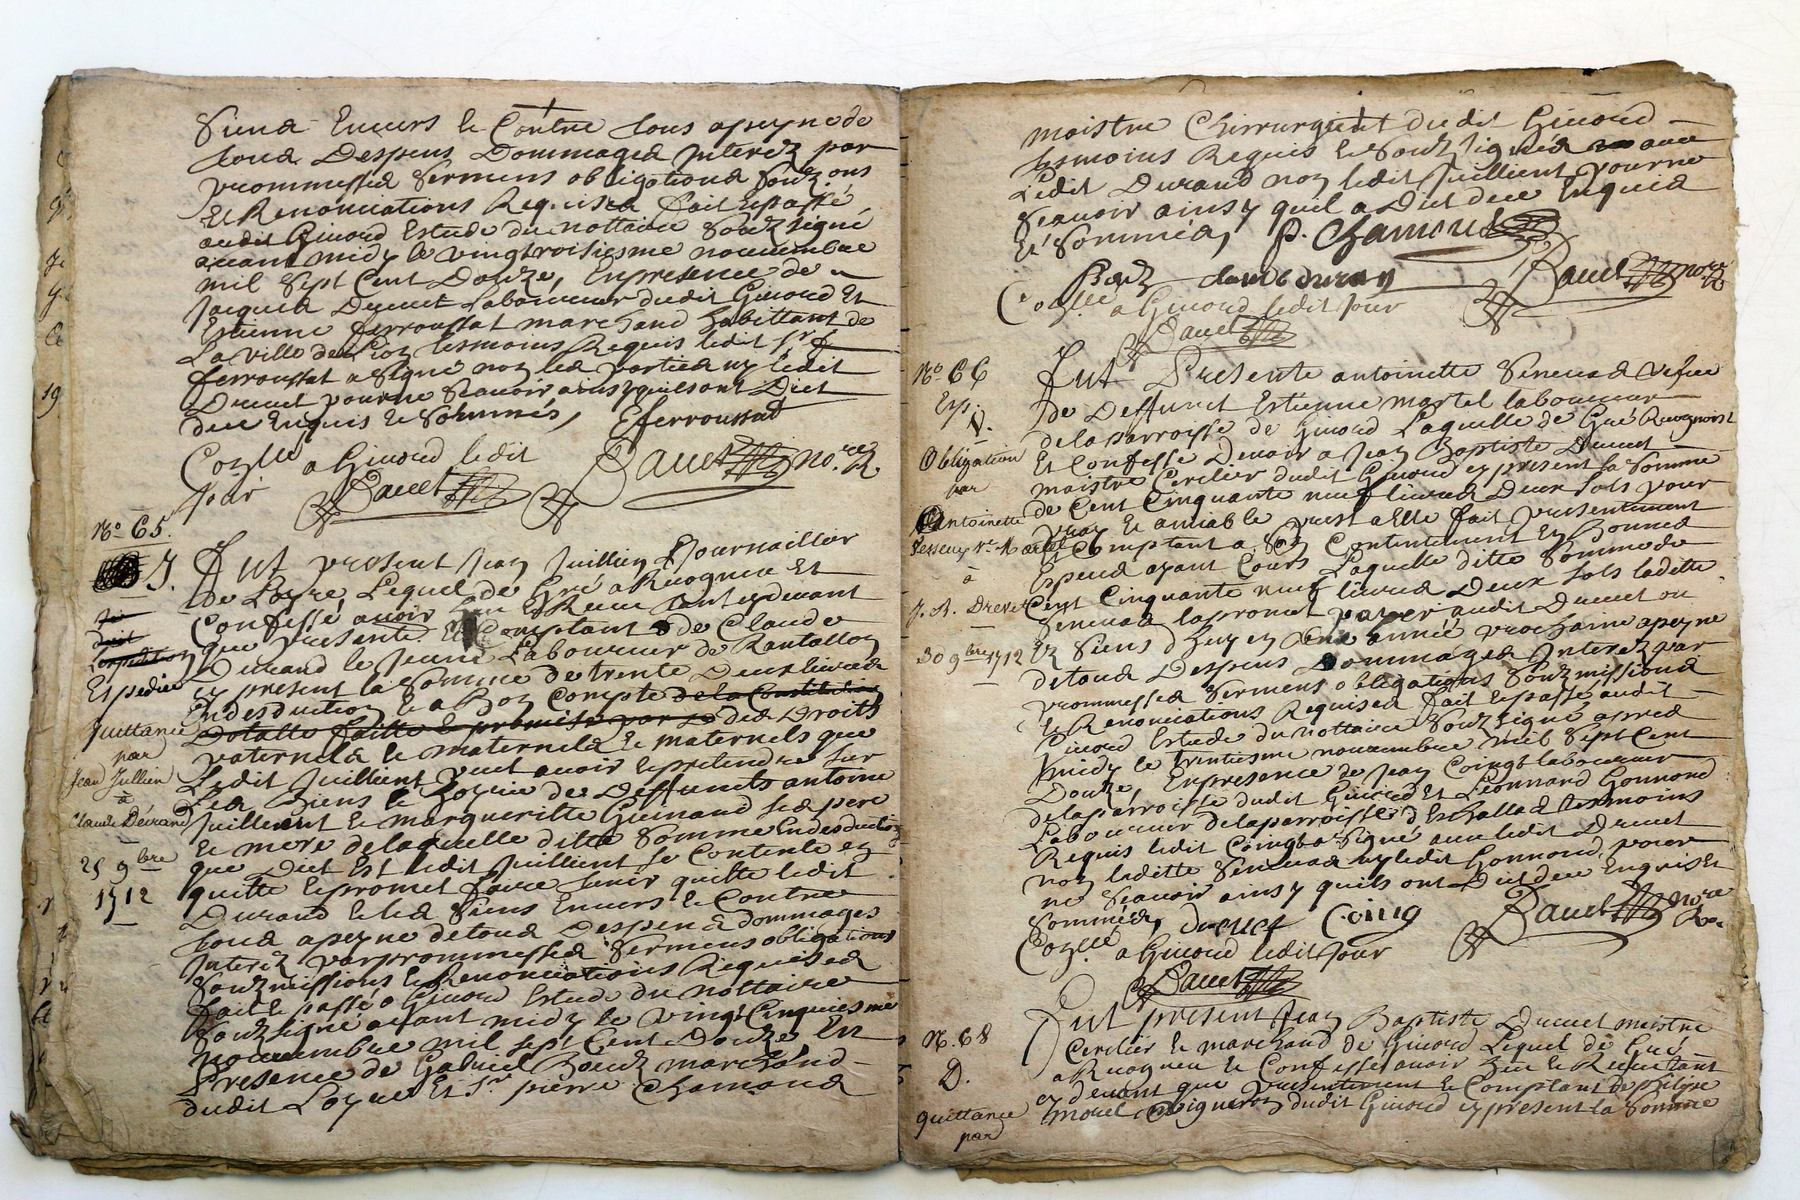 Siens Envers Et Contre sous apeyne de
tous Despens Dommages Interez par
promesses sermens obligations souz.ons
Et Renonciations Requises fait Et passé
audit Givord Estude du nottaire Souz signé
avant midy le vingtroisiesme novembre
mil Sept Cent Douze, En presence de
Jacques Drevet Laboureur dudit Givord Et
Estienne ferroussat marchand habittant de
La ville de Lion tesmoins Requis ledit Sr
ferroussat a signé non les parties ny ledit
Drevet pour ne Scavoir ainsy quils ont Dict
deue Enquis Et Sommés, Eferroussat
Con.llé a Givord ledit
jour
No. 65.
J.
Expedier
Quittance
par
Jean Jullien
à
Claude Durand
25 9bre
1712
Fut present Jean Juillien Journaillier
de Loyre Lequel de Gré a Recogneu Et
Confessé avoir Eu Et Receu tant cy devant
que presentem. Comptant de Claude
Durand le Jeune Laboureur de
cy present la Somme de trente Deux livres
En desduction Et a Bon Compte de la Constitution
Dotalle faitte Et promise par des Droits
paternels Et maternels Et maternels que
Ledit Juillient peut avoir Et pretendre sur
les Biens Et hoyrie des Deffuncts antoine
Juillient Et margueritte Guinand ses pere
Et mere de laquelle ditte Somme En desduction
que Dict Est ledit Juillient se Contente en
quitte Et promet faire tenir quitte ledit
Durand Et les Siens Envers Et Contre
tous apeyne de tous Despens dommages
Interez par prommesses Sermens obligations
Souzmissions Et Renonciations Requises
fait Et passé a Givord Estude du nottaire
Souz signé avant midy le vingt Cinquiesme
novembre mil sept Cent Douze, En
Presence de Gabriel marchand
dudit Loyre Et Sr pierre Chamond
maistre Chirurgient dudit Givord
tesmoins Requis Et Souz signés avec
Ledit Durand non ledit Juillient pour ne
Scavoir ainsy quil a Dict deue Enquis
Et Sommés, P. Chamond
claude duran
Con.llé a Givord ledit Jour
No. 66
Exp.
Obligation
par
Antoinette
Ve. Martel
à
J. B. Drevet
30 9bre 1712
Fut Presente antoinette Sevenas vefve
de Deffunct Estienne martel laboureur
de la parroisse de Givord Laquelle de Gré Recognoist
Et Confesse Devoir a Jean Baptiste Drevet
maistre Cerclier dudit Givord cy present la Somme
de Cent Cinquante neuf livres Deux sols pour
vray Et amiable prest a Elle fait presentement
Et Comptant a Son Contentement En Bonnes
Especes ayant Cours Laquelle ditte Somme de
Cent Cinquante neuf livres Deux sols ladette
Sevenas la promet payer audit Drevet ou
Es Siens d'huy en Une année prochaine apeyne
de tous Despens Dommages Interez par
prommesses Sermens obligations Souzmissions
Et Renonciations Requises fait Et passé audit
Givord Estude du nottaire Souz signé apres
midy le trentiesme novembre mil Sept Cent
Douze, En presence de Jean Coingt laboureur
de la parroisse dudit Givord Et Leonnard Gonnond
Laboureur de la parroisse d'Eschallas tesmoins
Requis ledit Coingt a signé avec ledit Drevet
non laditte Sevenas ny ledit Gonnond pour
ne Scavoir ainsy quils ont Dict deue Enquis Et
Sommés, Drevet Coing
Con.llé a Givord ledit Jour
N. 68
D.
Quittance
par
Fut present Jean Baptiste Drevet maistre
Cerclier Et marchand de Givord Lequel de Gré
a Recogneu Et Confesse avoir Eu Et Receu tant
cy devant que presentement Et Comptant de philipe
morel vigneron dudit Givord cy present la Somme